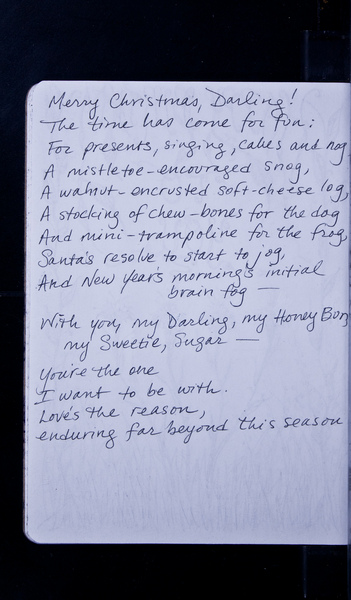 Merry Christmas, Darling!
The time has come for fun:
For presents, singing, cakes and nog
A mistletoe-encouraged snog,
A walnut-encrusted soft-cheese log,
A stocking of chew-bones for the dog
And mini-trampoline for the frog,
Santa's resolve to start to jog,
And New Year's morning's initial
brain fog —
With you, my Darling, my Honey Bun,
my Sweetie, Sugar —
You're the one
I want to be with.
Love's the reason,
enduring far beyond this season